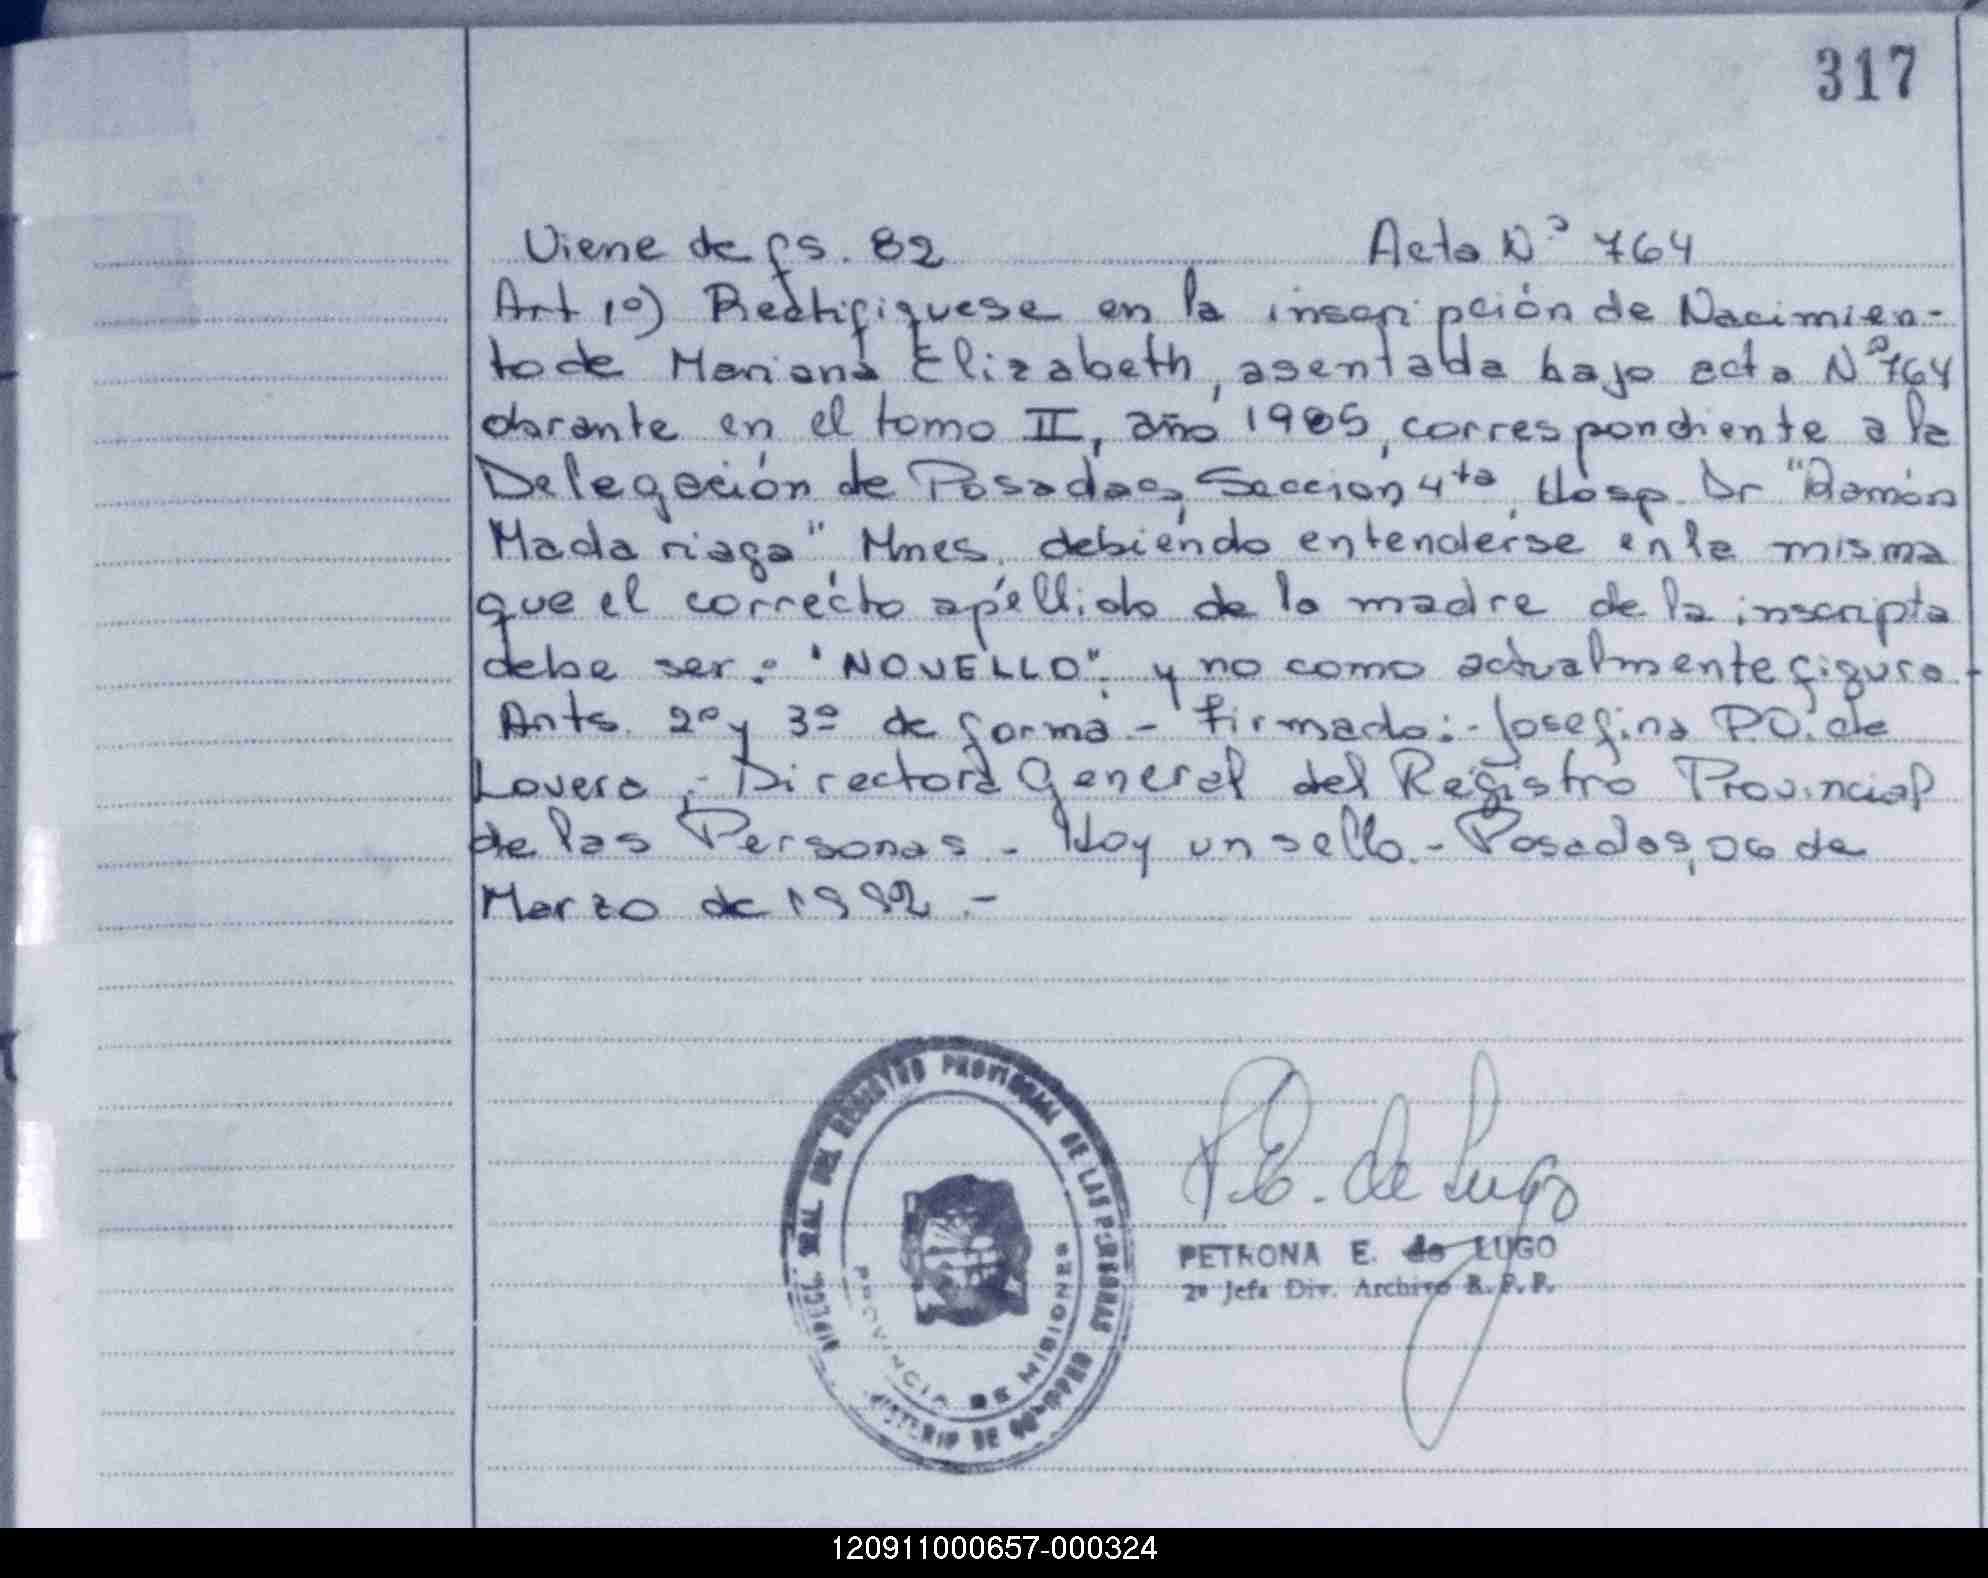 317
Viene de fs. 82 Acta Nº 764
Art 1º) Rectifiquese en la inscripción de Nacimien-
to de Mariana Elizabeth, asentada bajo acta Nº 764
obrante en el tomo II, año 1985, correspondiente a la
Delegación de Posadas, Sección 4ta, Hosp. Dr "Ramón
Madariaga", Mnes, debiendo entenderse en la misma
que el correcto apellido de la madre de la inscripta
debe ser: "NOVELLO", y no como actualmente figura.-
Arts. 2º y 3º de forma.- Firmado:- Josefina P.O. de
Lovera.- Directora General del Registro Provincial
de las Personas.- Hay un sello.- Posadas, 06 de
Marzo de 1992.-
P.E. de Lugo
PETRONA E. de LUGO
2º Jefa Div. Archivo R. P. P.
DEL REGISTRO PROVINCIAL DE LAS PERSONAS
PROVINCIA DE MISIONES
120911000657-000324